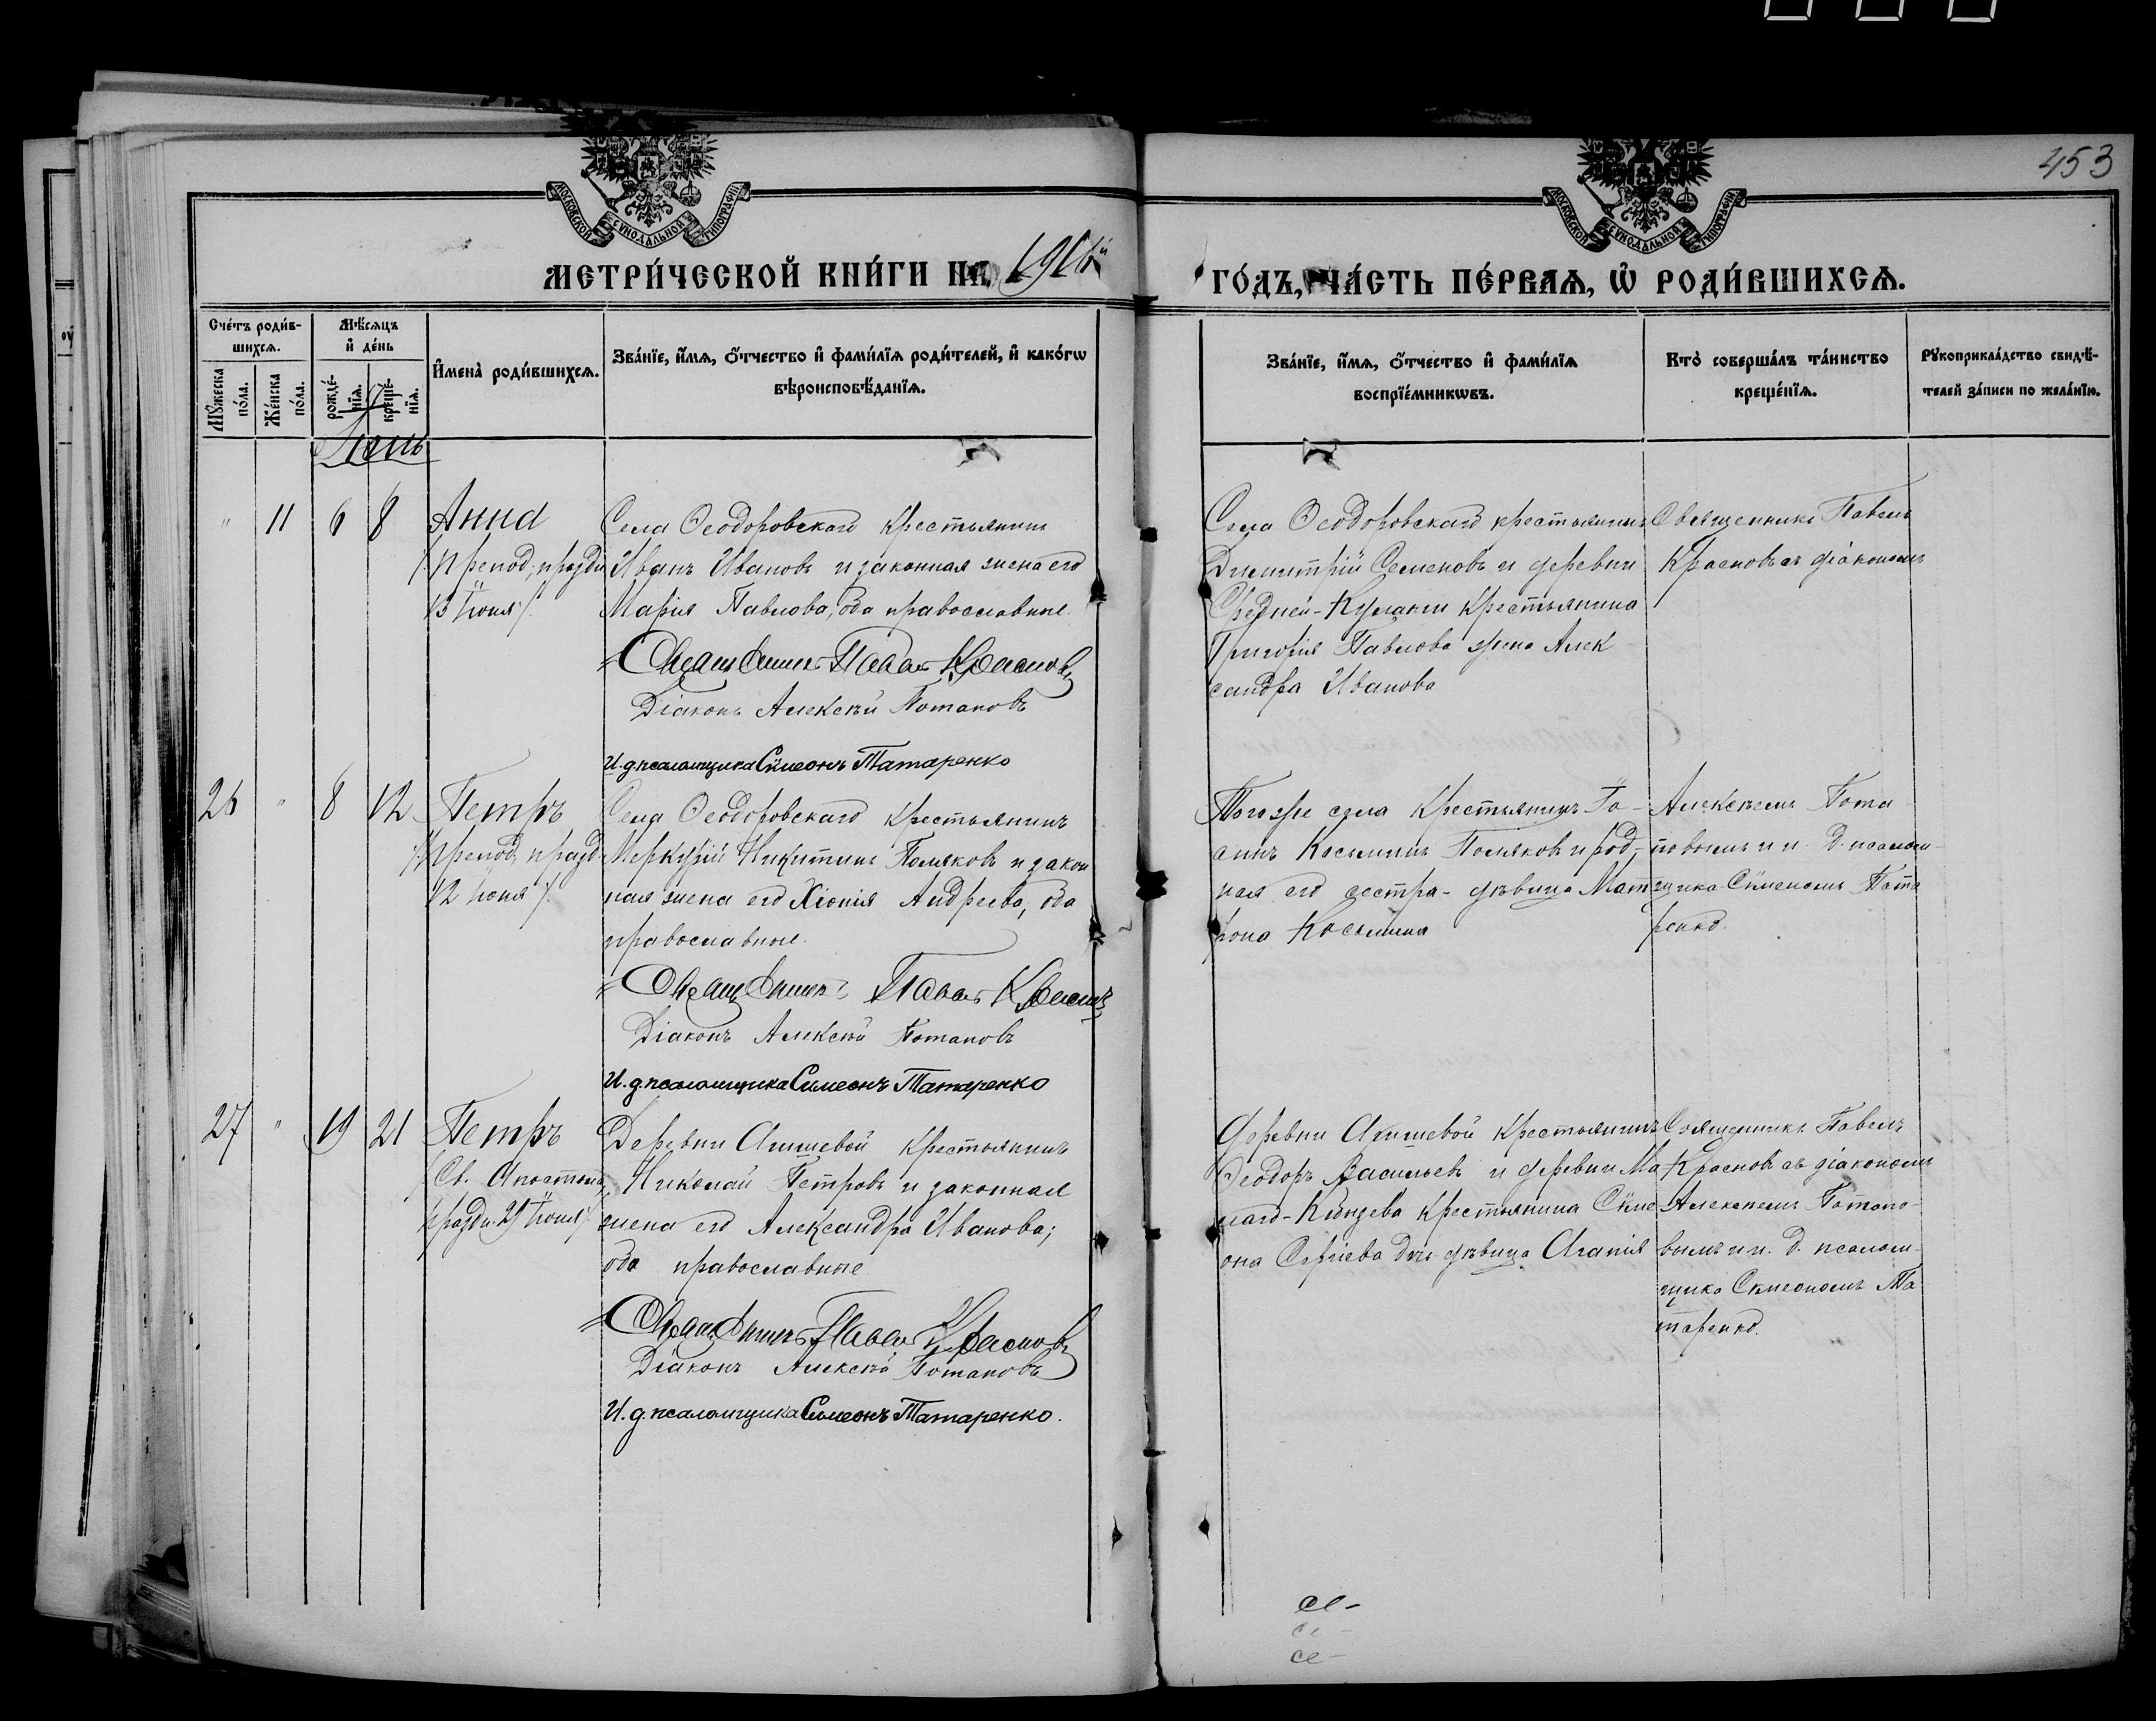 453
МОСКОВСКОЙ СѴНОДАЛЬНОЙ ТИПОГРАФІИ
МОСКОВСКОЙ СѴНОДАЛЬНОЙ ТИПОГРАФІИ
МЕТРИ́ЧЕСКОЙ КНИ́ГИ НА 1916й
ГО́ДЪ, ЧА́СТЬ ПЕ́РВАѦ, Ѡ҆ РОДИ́ВШИХСѦ.
Сче́тъ роди́в-
шихсѧ.
Мꙋ́жеска
по́ла.
Же́нска
по́ла.
Мѣ́сѧцъ
и҆ де́нь
рожде́-
нїѧ.
креще́-
нїѧ.
И҆мена̀ роди́вшихсѧ.
Зва́нїе, и҆́мѧ, ѻ҆́тчество и҆ фами́лїѧ роди́телей, и҆ како́гѡ
вѣроисповѣ́данїѧ.
Зва́нїе, и҆́мѧ, ѻ҆́тчество и҆ фами́лїѧ
воспрїе́мникѡвъ.
Кто̀ соверша́лъ та́инство
креще́нїѧ.
Рꙋкоприкла́дство свидѣ́-
телей за́писи по жела́нїю.
Іюнь
" 11 6 8 Анна
/: Препод; праздн
13 Іюня :/
Села Ѳеодоровскаго крестьянинъ
Иванъ Ивановъ и законная жена его
Марія Павлова, оба православные.
Священникъ Павелъ Красновъ
Діаконъ Алексѣй Потаповъ
И. д. псаломщика Сѷмеонъ Татаренко
Села Ѳеодоровскаго крестьянинъ
Димитрій Семеновъ и деревни
Средней- крестьянина
Григорія Павлова жена Алек-
сандра Иванова
Священникъ Павелъ
Красновъ съ діакономъ
26 " 8 12 Петръ
/: Препод, празд.
12 іюня :/
Села Ѳеодоровскаго крестьянинъ
Меркурій Никитинъ Поляковъ и закон
ная жена его Хіонія Андреева, оба
православные.
Священникъ Павелъ Красновъ
Діаконъ Алексѣй Потаповъ
И. д. псаломщика Симеонъ Татаренко
Того же села крестьянинъ Іо-
аннъ Косьминъ Поляковъ и род-
ная его сестра- дѣвица Мат
рона Косьмина
Алексѣемъ Пота-
повымъ и и. д. псалом-
щика Сѷмеономъ Тата
ренко.
27 " 19 21 Петръ
/: Св. Апостолъ,
праздн. 29 Іюня :/
Деревни крестьянинъ
Николай Петровъ и законная
жена его Александра Иванова;
оба православные
Священникъ Павелъ Красновъ
Діаконъ Алексѣй Потаповъ
И. д. псаломщика Симеонъ Татаренко.
Деревни крестьянинъ
Ѳеодоръ Васильевъ и деревни Ма
лаго- крестьянина Сѷме
она Сергіева дчь дѣвица Агапія
Священникъ Павелъ
Красновъ съ діакономъ
Алексѣемъ Потапо-
вымъ и и. д. псалом-
щика Сѷмеономъ Та
таренко.